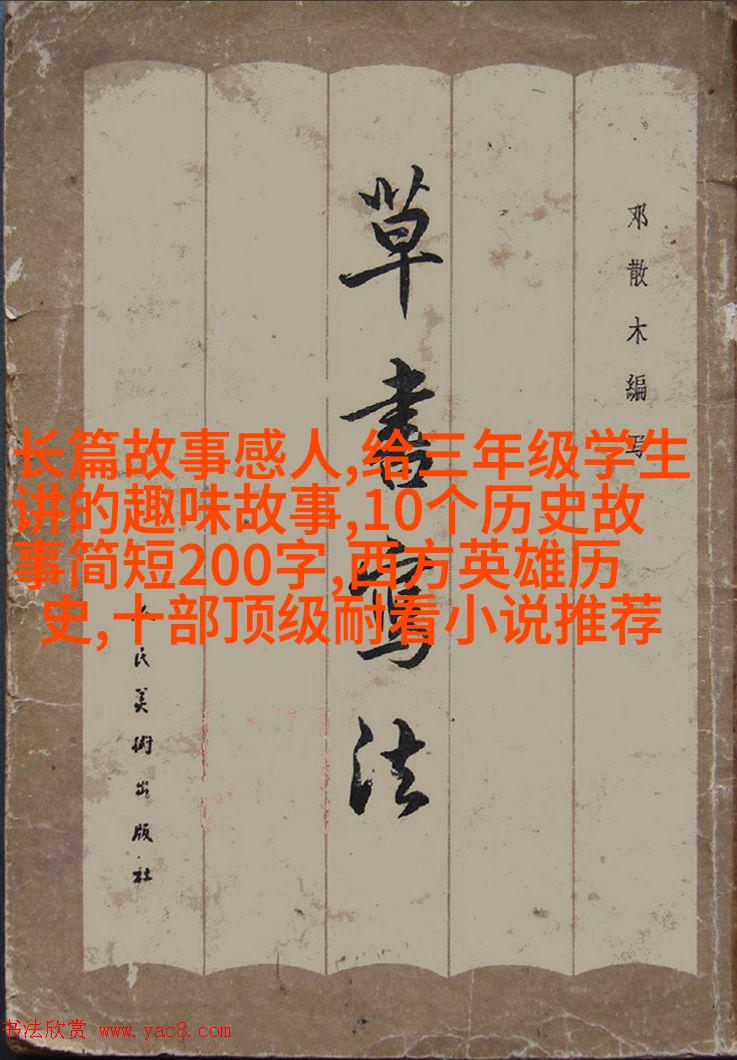 草書寫法
邓散木編写
长篇故事感人,给三年级学生
讲的趣味故事,10个历史故
事简短200字,西方英雄历
史,十部顶级耐看小说推荐
民美術出版社
书法欣赏 www.yac8.com